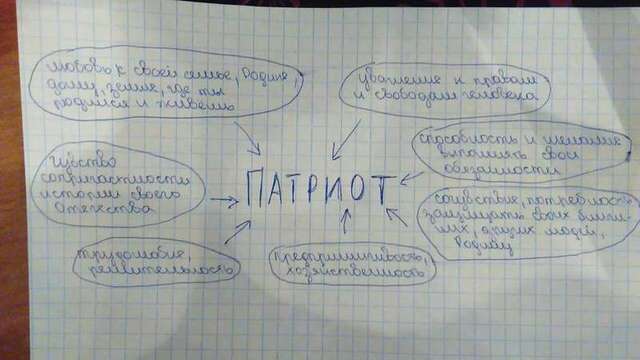 любовь к своей семье, Родине,
дому, земле, где ты
родился и живешь
уважение к правам
и свободам человека
способность и желание
выполнять свои
обязанности
Чувство
сопричастности
истории своего
Отечества
ПАТРИОТ
сочувствие, потребность
защищать своих близ-
ких, других людей,
Родину
трудолюбие,
решительность
предприимчивость,
хозяйственность